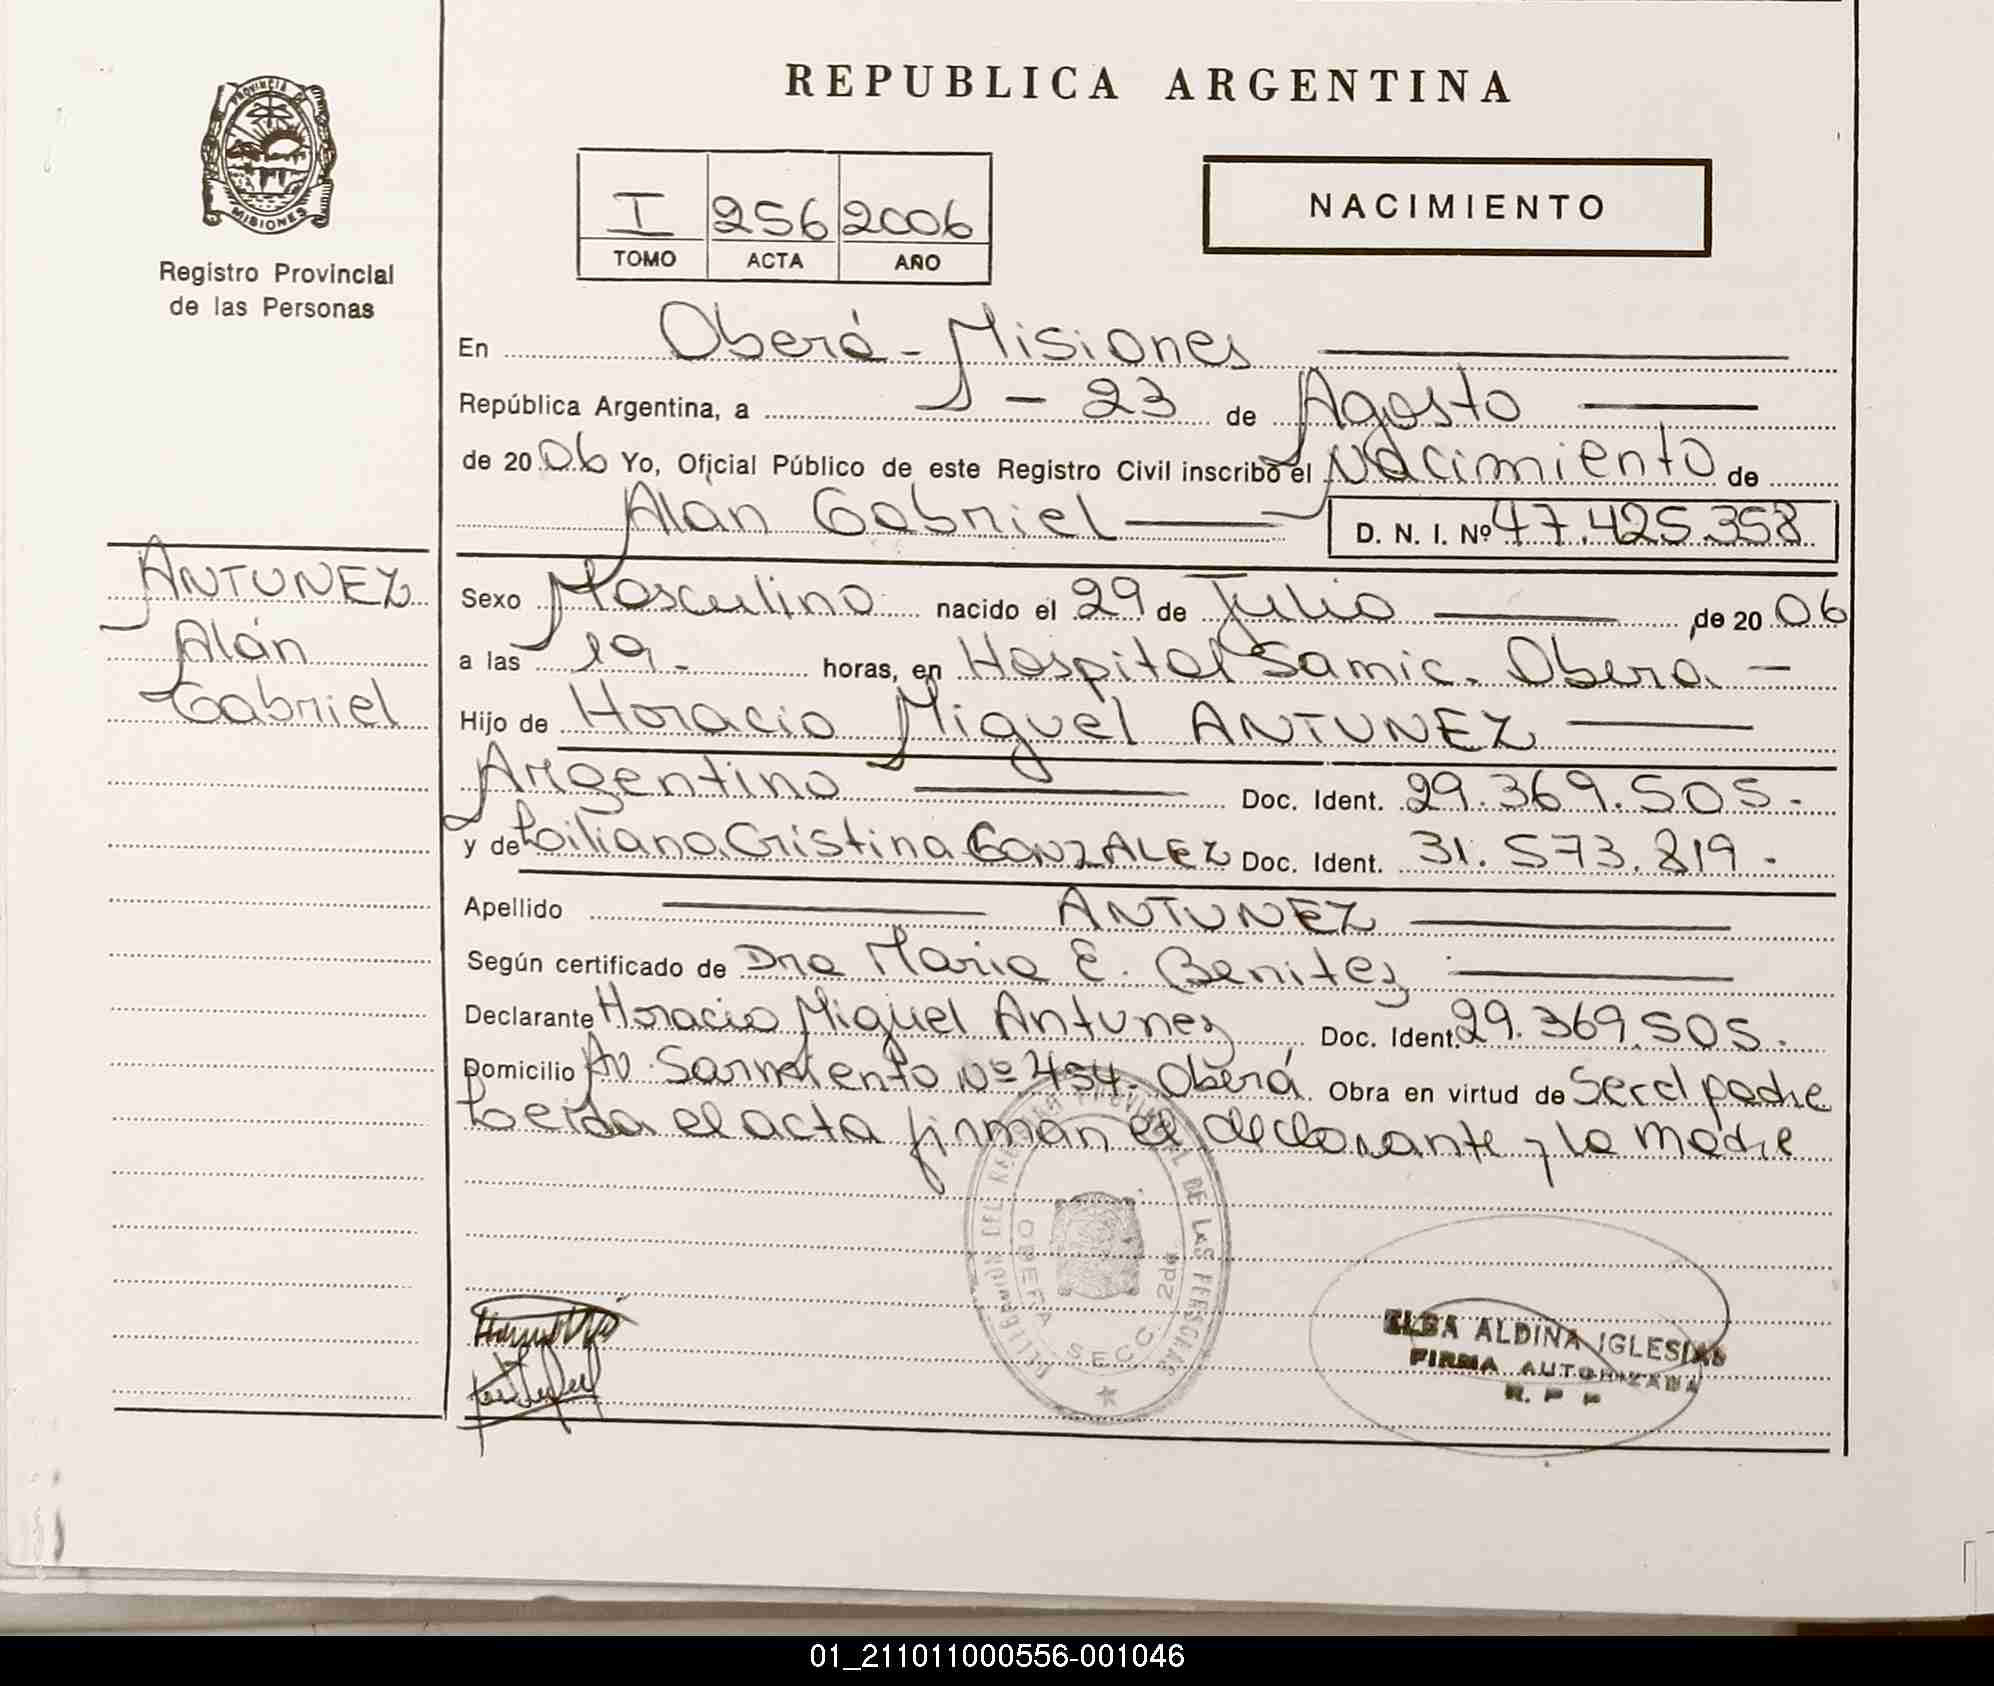 REPUBLICA ARGENTINA
PROVINCIA DE
MISIONES
Registro Provincial
de las Personas
I 256 2006
TOMO ACTA AÑO
NACIMIENTO
En Oberá - Misiones
República Argentina, a - 23 de Agosto
de 2006 Yo, Oficial Público de este Registro Civil inscribo el Nacimiento de
Alán Gabriel D. N. I. Nº 47.425.358
ANTUNEZ
Alán
Gabriel
Sexo Masculino nacido el 29 de Julio de 2006
a las 19. horas, en Hospital Samic. Oberá. -
Hijo de Horacio Miguel ANTUNEZ
Argentino Doc. Ident. 29.369.505.
y de Liliana Cristina GONZALEZ Doc. Ident. 31.573.819.
Apellido ANTUNEZ
Según certificado de Dra Maria E. Benitez
Declarante Horacio Miguel Antunez Doc. Ident. 29.369.505.
Domicilio Av. Sarmiento Nº 454. Oberá Obra en virtud de Ser el padre
Leida el acta firman el declarante y la madre
DELEGACION DEL REGISTRO PROVINCIAL DE LAS PERSONAS
OBERA SECC. 2da.
ELBA ALDINA IGLESIAS
FIRMA AUTORIZADA
R. P. P.
01_211011000556-001046